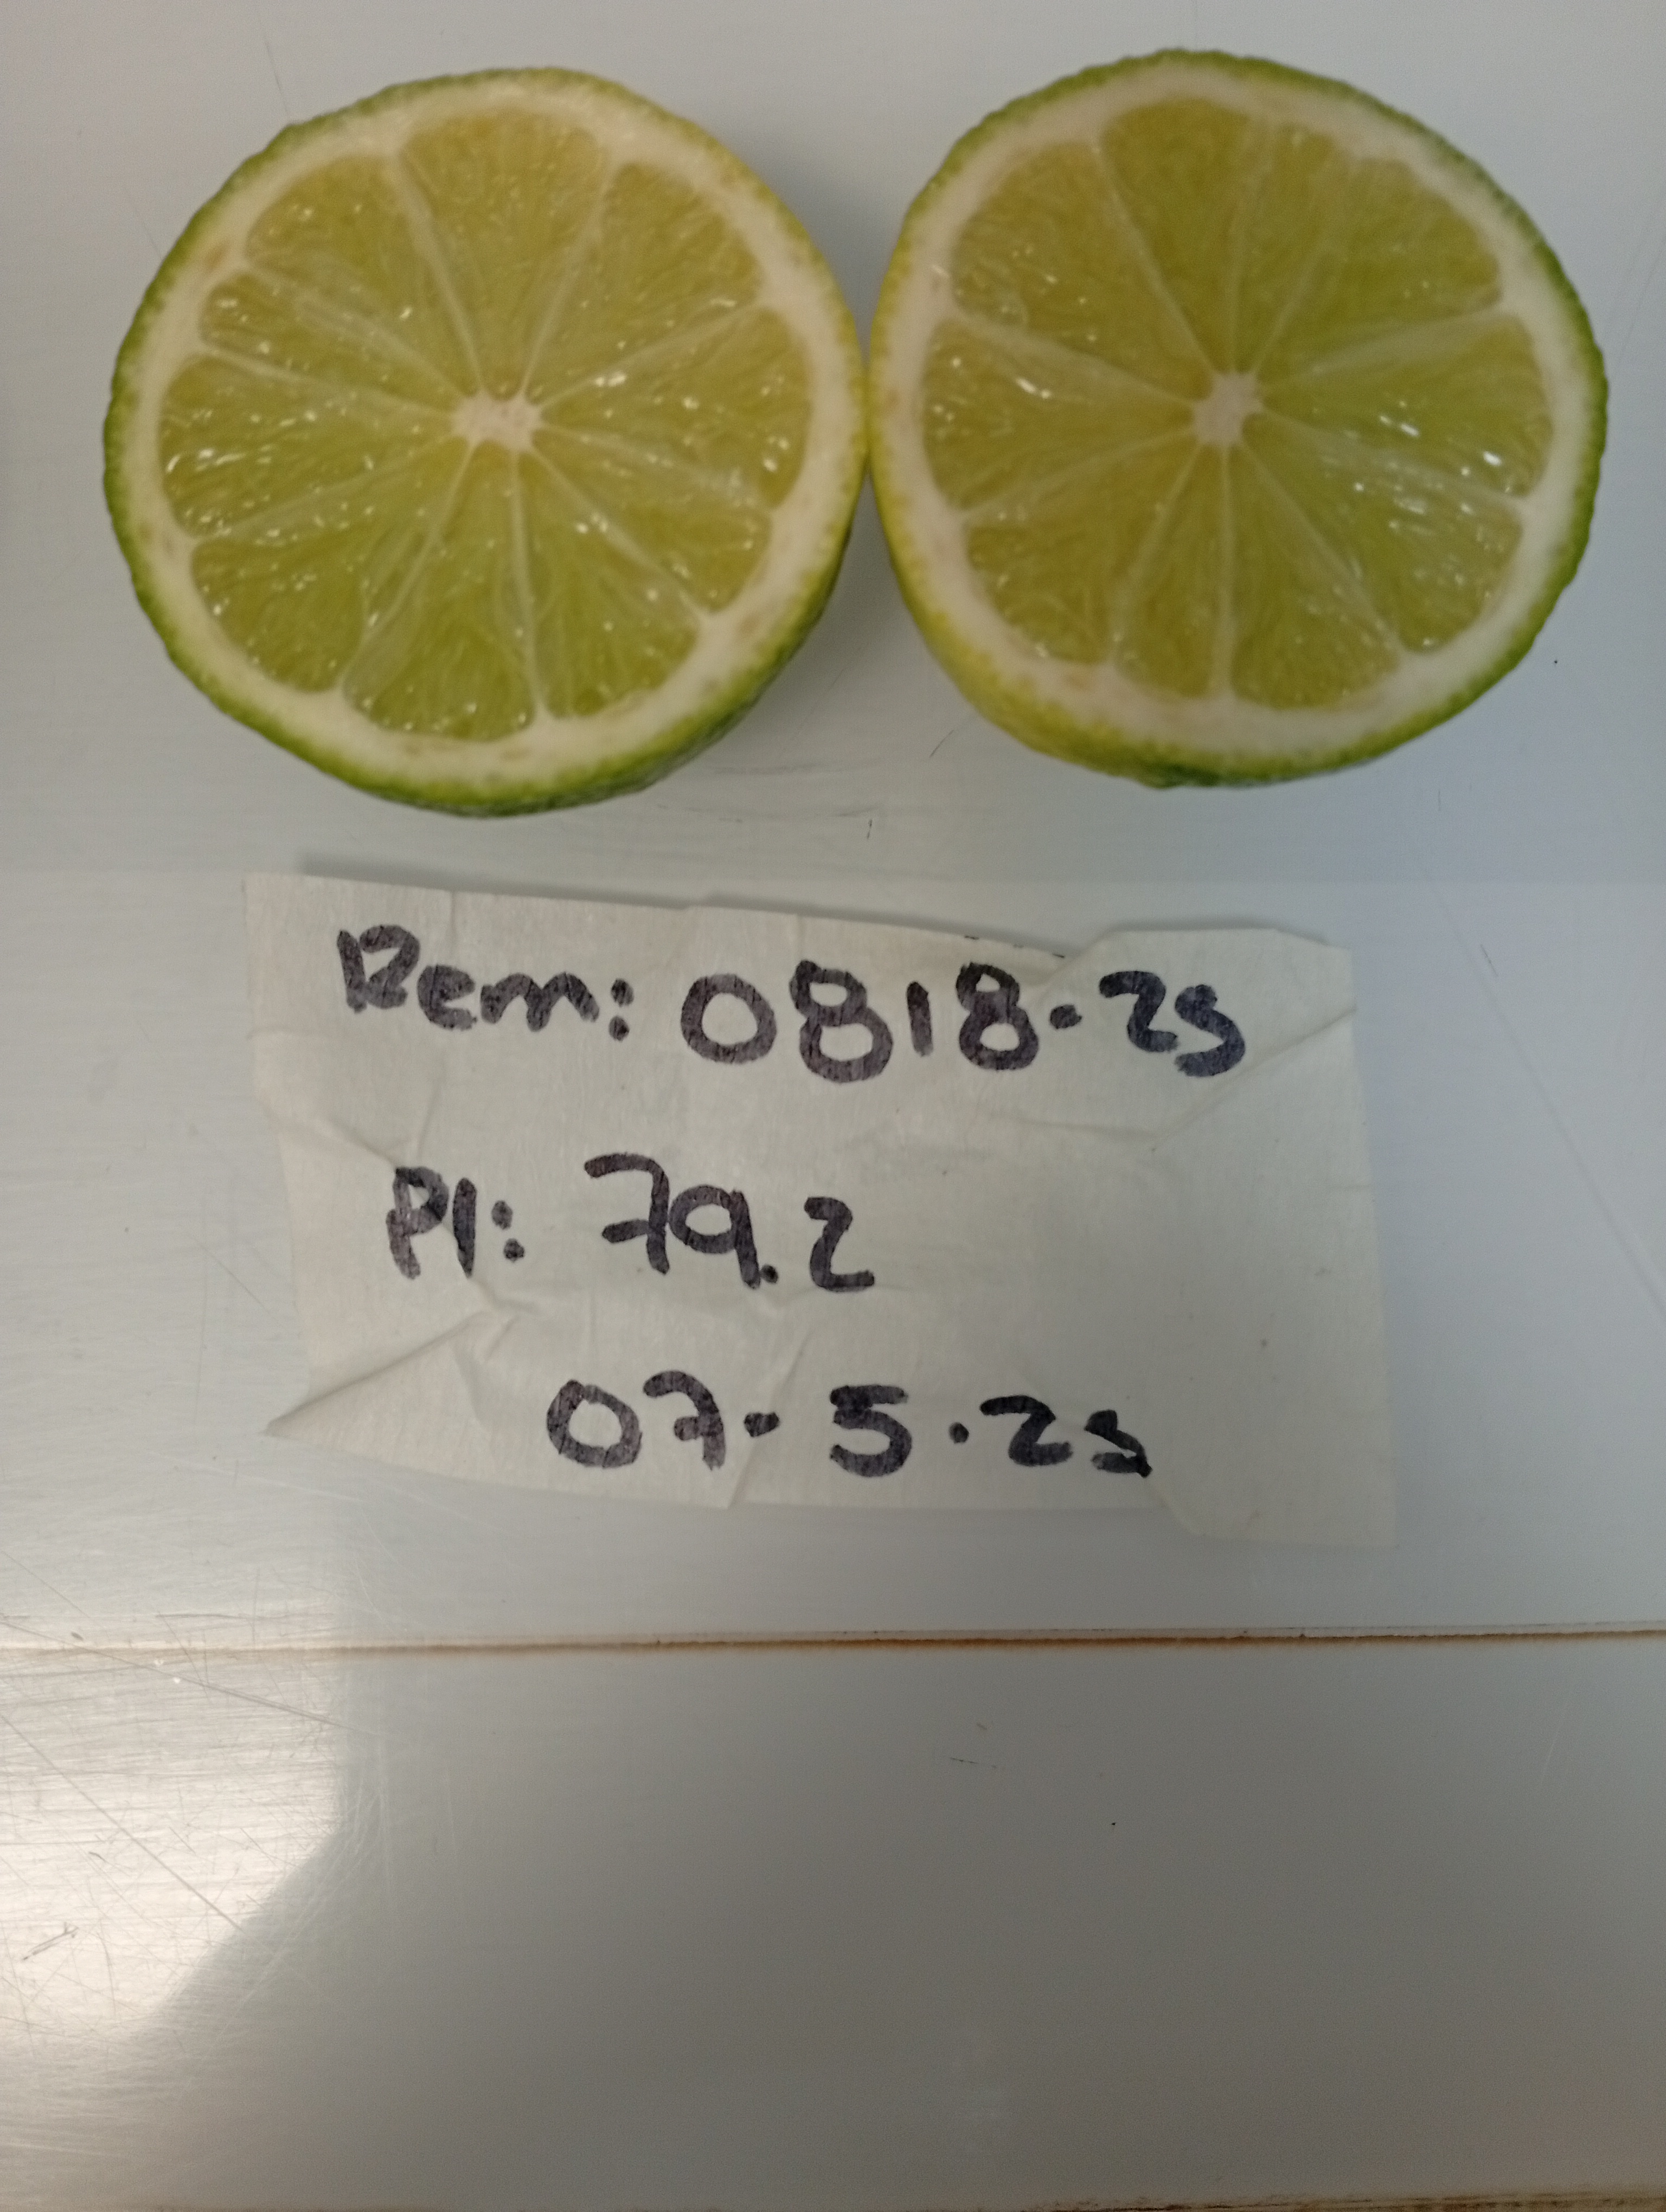 Rem: 0818-25
Pl: 79.2
07-5.25